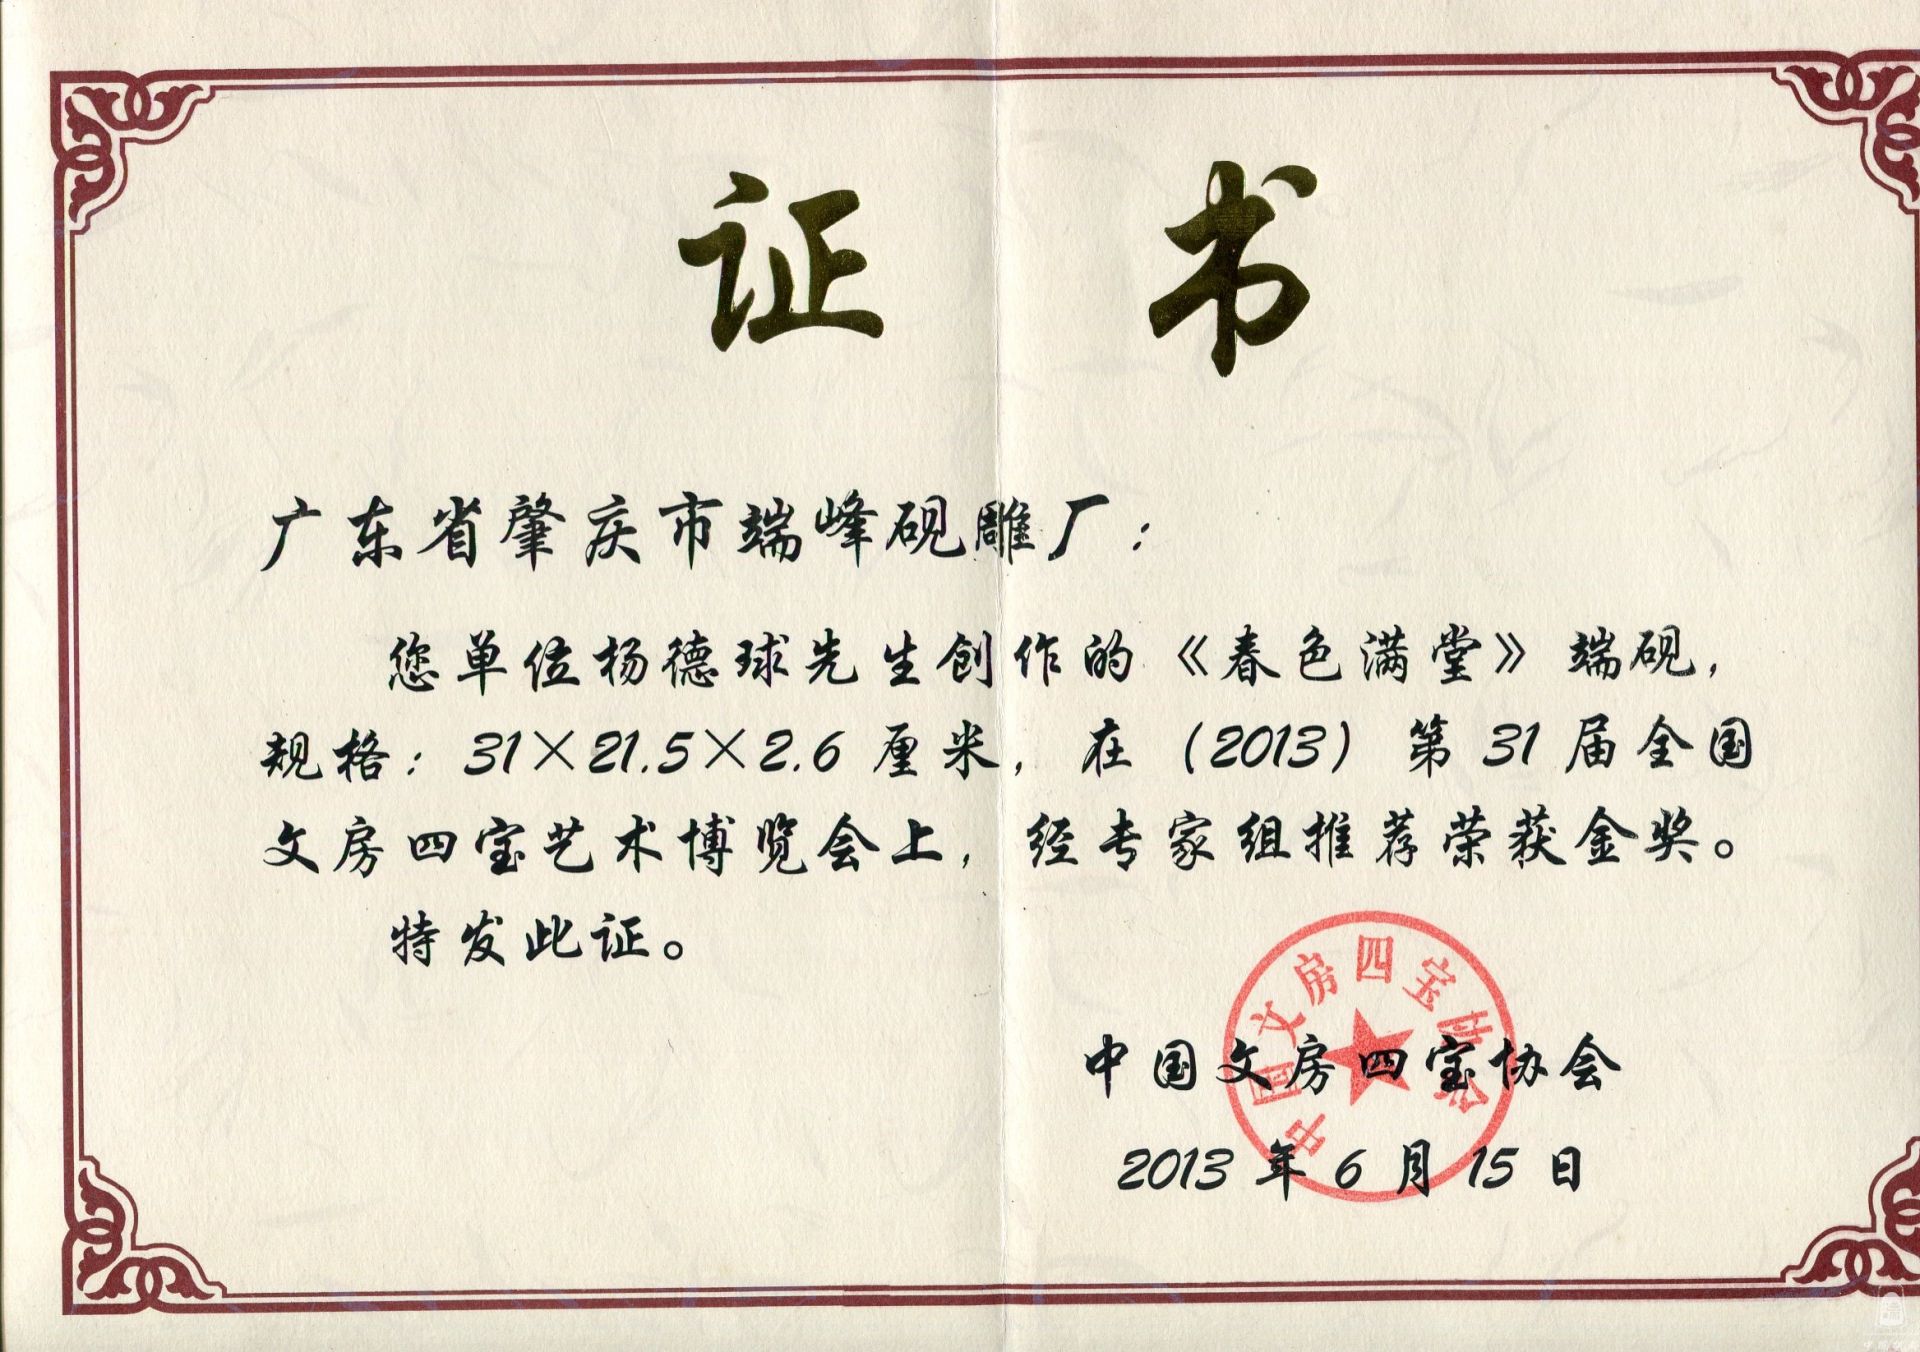 证书
广东省肇庆市端峰砚雕厂：
您单位杨德球先生创作的《春色满堂》端砚，
规格：31×21.5×2.6 厘米，在（2013）第 31 届全国
文房四宝艺术博览会上，经专家组推荐荣获金奖。
特发此证。
中国文房四宝协会
中国文房四宝协会
2013 年 6 月 15 日